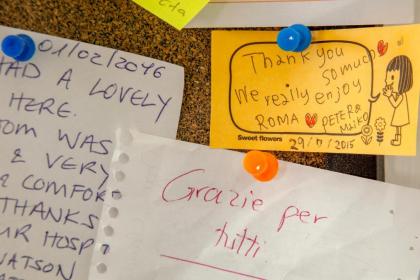 01/02/2016
HAD A LOVELY
HERE.
OM WAS
& VERY
COMFOR
THANKS
UR HOSP
WATSON
Thank you
so much
We really enjoy
ROMA PETER &
Sweet flowers
29/11/2015
Grazie per
tutti